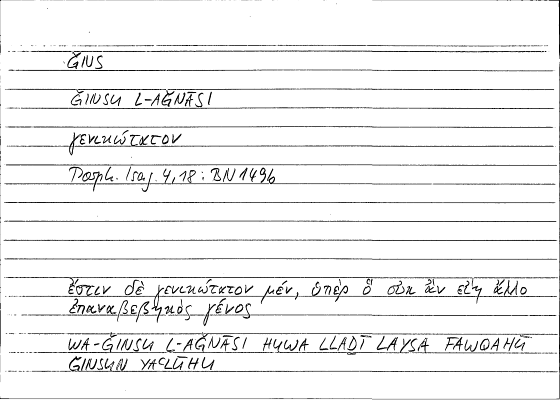 ǦINS
ǦINSU L-AǦNĀSI
γενικώτατον
Porph. Isag. 4,18 : BN 149b
ἔστιν δὲ γενικώτατον μέν, ὑπὲρ ὃ οὐκ ἂν εἴη ἄλλο
ἐπαναβεβηκὸς γένος
WA-ǦINSU L-AǦNĀSI HUWA LLAḎĪ LAYSA FAWQAHŪ
ǦINSUN YAʿLŪHU